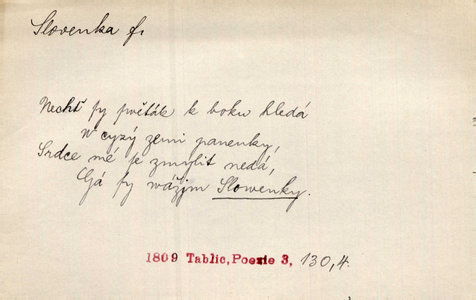 Slovenka f.
Nechť sy pošták k boku hledá
W cyzý zemi panenky,
Srdce mé se zmýlit nedá,
Gá sy wážjm Slowenky.
1809 Tablic, Poezie 3, 130,4.